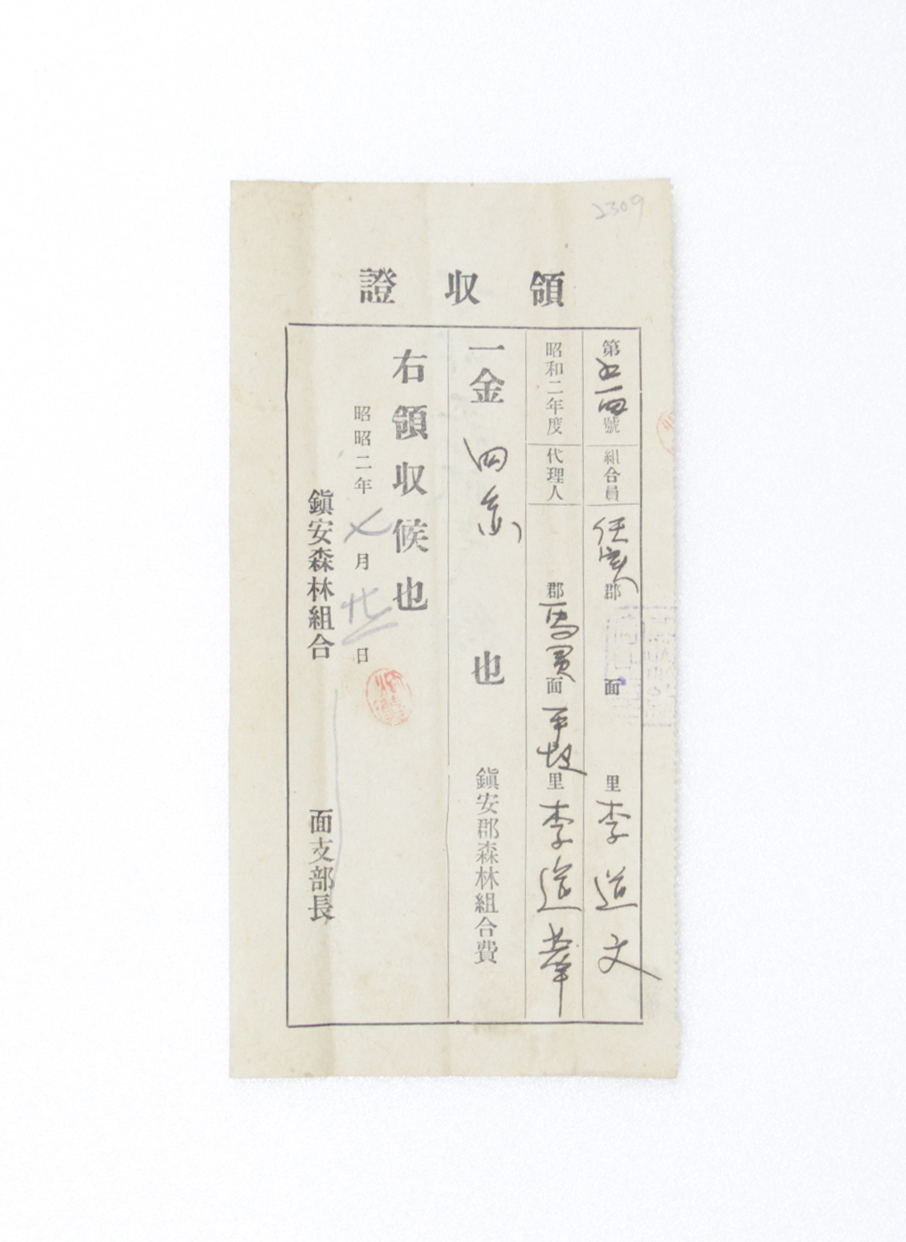 2309
領收證
第五一四號 組合員 任實郡 面 里 李道文
昭和二年度 代理人 郡 馬靈面 平地里 李道華
一金 四条 也 鎭安郡森林組合費
右領収候也
昭昭二年 七月 廿二日
鎭安森林組合 面支部長